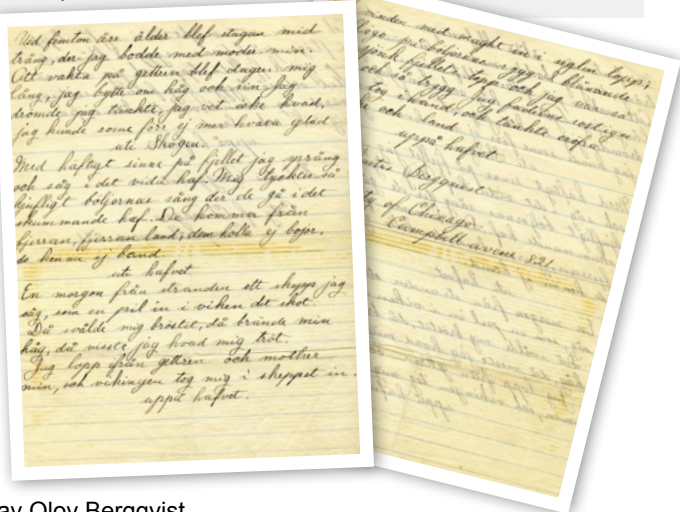 Vid femton års ålder blef stugan mid
trång, der jag bodde med moder min.
Att vakta på gettren blef dagen mig
lång, jag bytte om håg och sin jag
drömde jag tänkte, jag vet icke hvad,
jag kunde som förr ej mer hvara glad
uti Skogen.
Med häftigt sinne på fjället jag språng
och såg i det vida haf. Mig tycktes så
ljufligt boljornas sång der de gå i det
skummande haf. De komma från
fjerran, fjerran land; dem holla ej bojor,
de kenna ej band.
uti hafvet
En morgon från stranden ett skepp jag
såg, som en pril in i viken det skot.
Då svälde mig bröstet, då brände min
håg, då viste jag hvad mig tröt.
Jag lopp ifrån gettren och mother
min, och vikingen tog mig i skeppet in.
uppå hafvet.
vinden med maght in i seglen lopp;
på boljorna rygg. I blånande
sjönk fjellets topp och jag var så
och så trygg. Jag faderns rostiga
tog i hand, och tänkte
och land
uppå hafvet.
Bergqvist
of Chicago
Campbell avine. 821.
av Olov Bergqvist